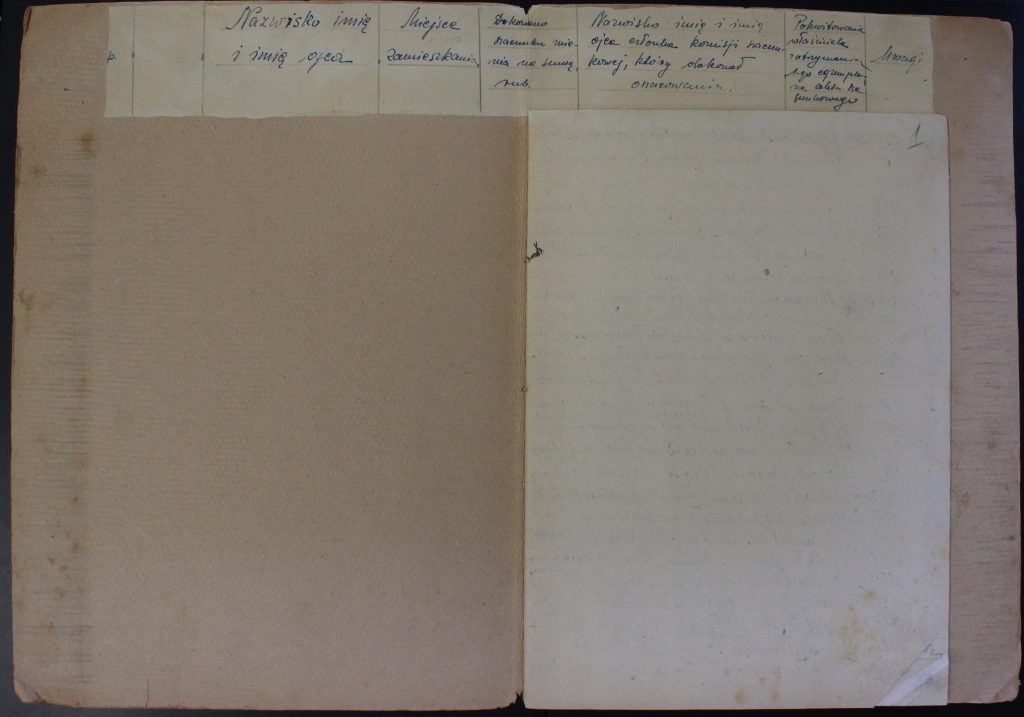 p.
Nazwisko imię
i imię ojca
Miejsce
zamieszkania
Dokonano
szacunku mię-
nia na sumę
rub.
Nazwisko imię i imię
ojca członka komisji szacun-
kowej, który dokonał
szacowania.
Pokwitowanie
właściciela
otrzymania
1-go egzempla-
na aktu sza-
cunkowego
Uwagi
1